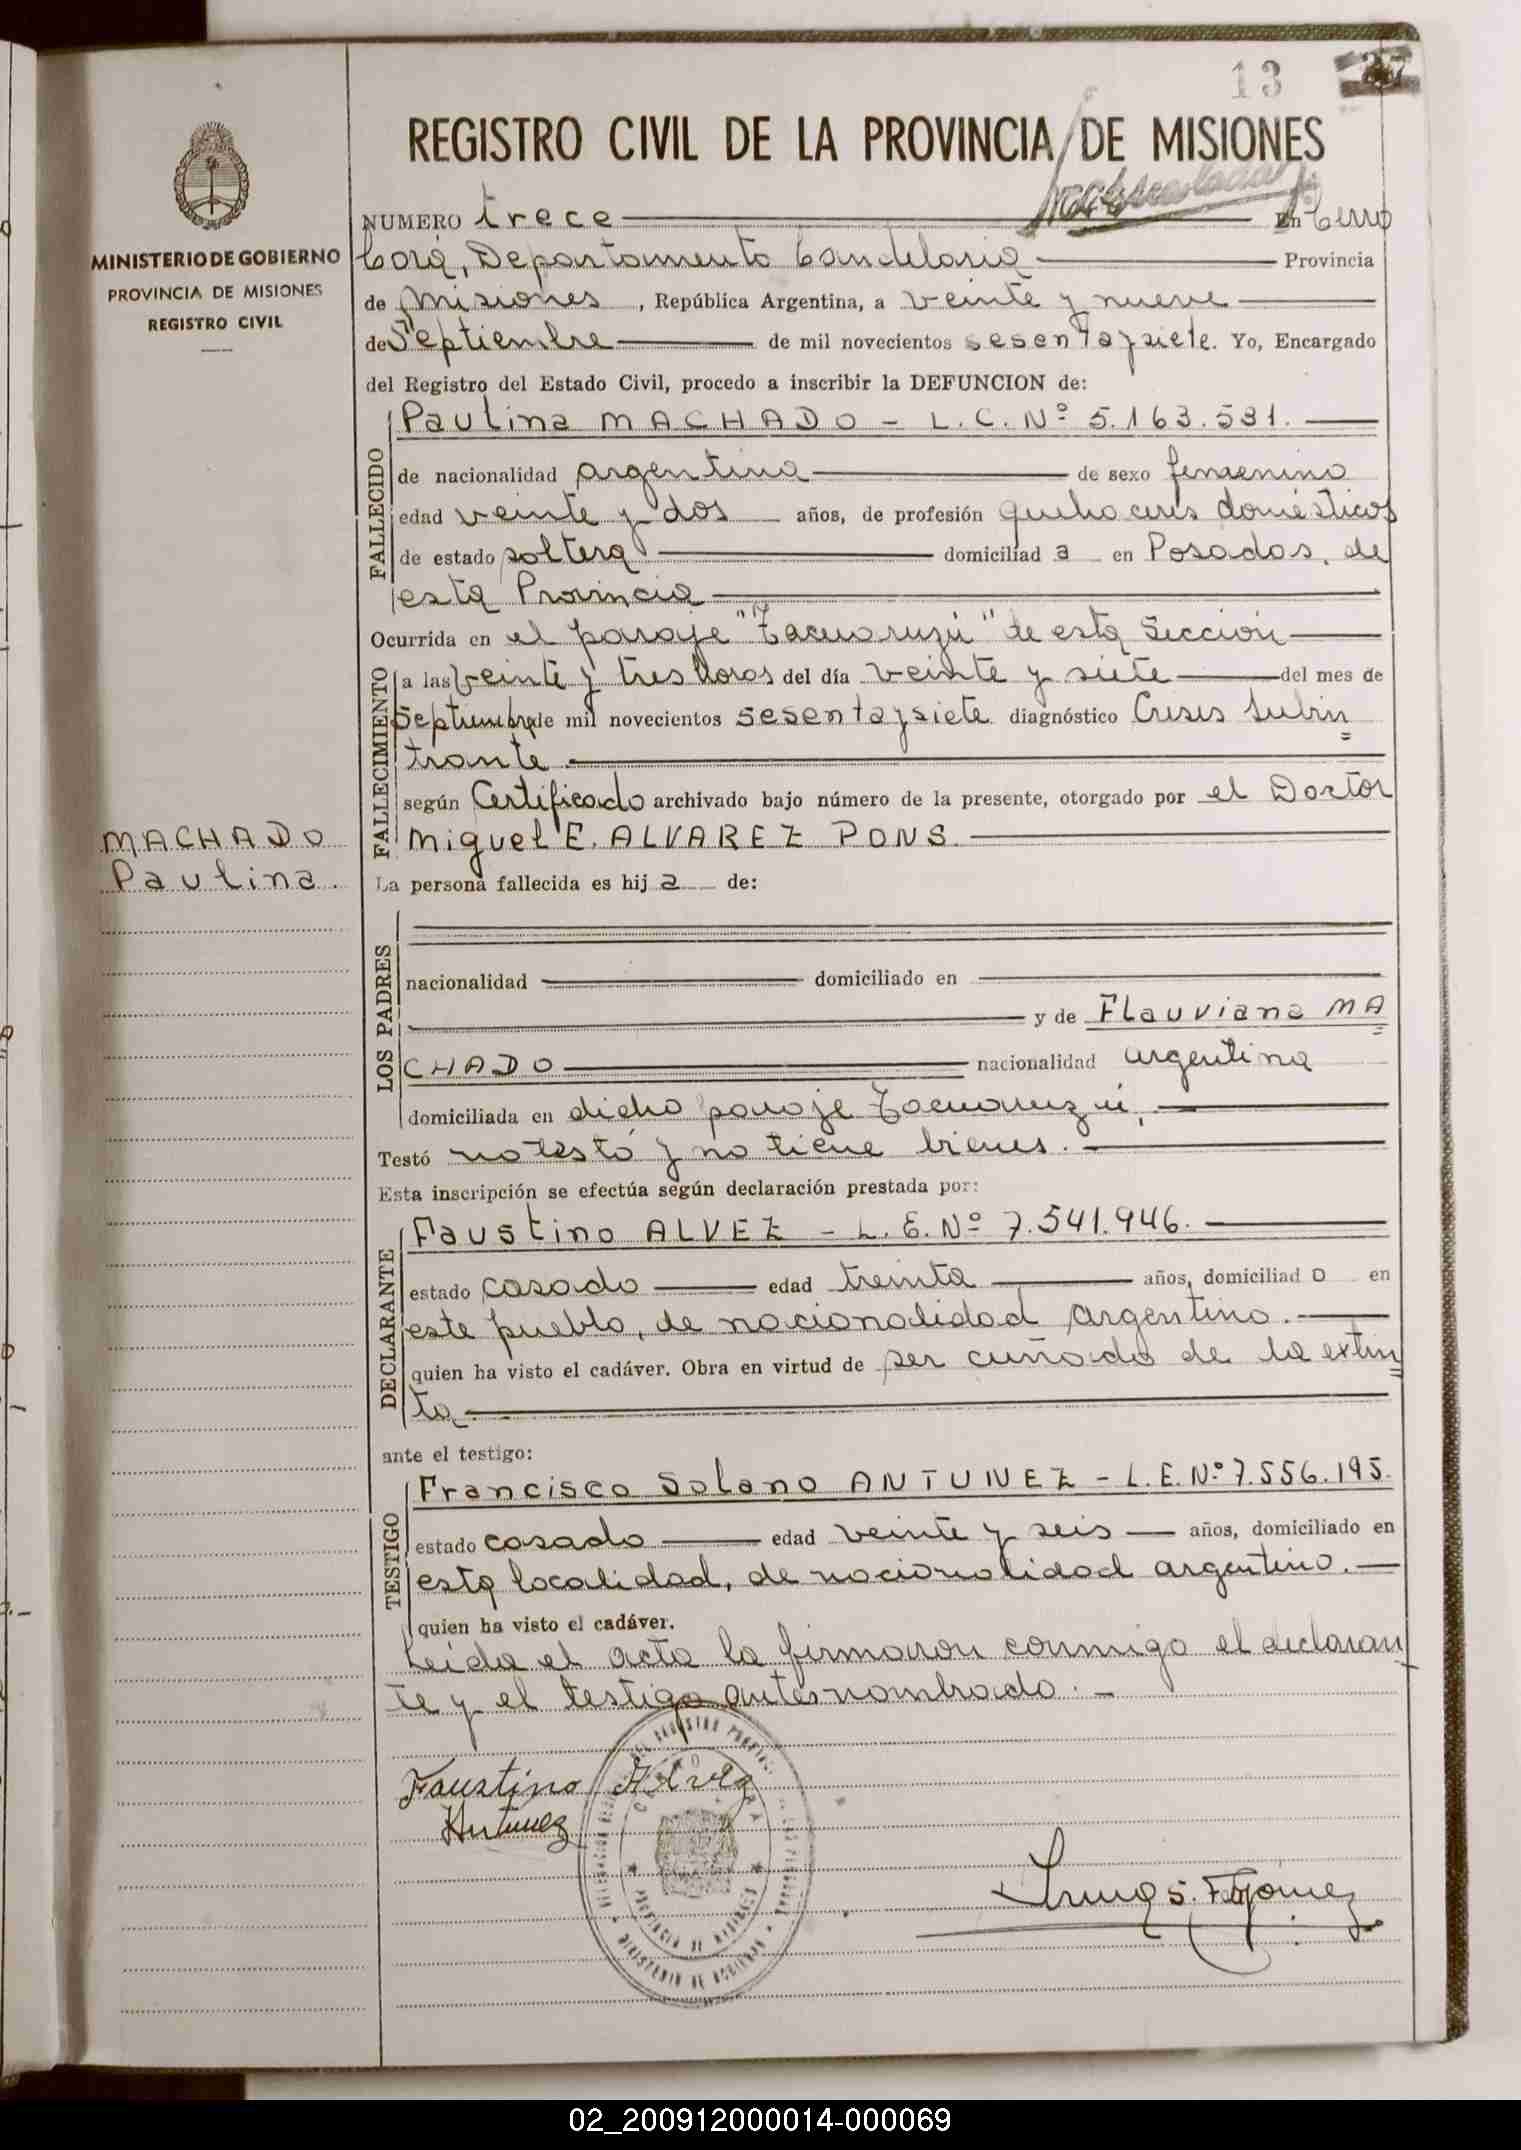 13
REGISTRO CIVIL DE LA PROVINCIA DE MISIONES
MINISTERIO DE GOBIERNO
PROVINCIA DE MISIONES
REGISTRO CIVIL
NUMERO trece En Cerro
Corá, Departamento Candelaria Provincia
de Misiones, República Argentina, a veinte y nueve
de Septiembre de mil novecientos sesentaysiete. Yo, Encargado
del Registro del Estado Civil, procedo a inscribir la DEFUNCION de:
FALLECIDO
Paulina MACHADO - L.C. Nº 5.163.531.
de nacionalidad argentina de sexo femenino
edad veinte y dos años, de profesión quehaceres domésticos
de estado soltera domiciliad a en Posadas, de
esta Provincia
Ocurrida en el paraje "Tacuaruzú" de esta Sección
FALLECIMIENTO
a las veinte y tres horas del día veinte y siete del mes de
Septiembre de mil novecientos sesentaysiete diagnóstico Crisis Subin
trante
según Certificado archivado bajo número de la presente, otorgado por el Doctor
Miguel E. ALVAREZ PONS.
MACHADO
Paulina.
La persona fallecida es hij a de:
LOS PADRES
nacionalidad domiciliado en
y de Flauviana MA
CHADO nacionalidad argentina
domiciliada en dicho paraje Tacuaruzú.
Testó no testó y no tiene bienes.
Esta inscripción se efectúa según declaración prestada por:
DECLARANTE
Faustino ALVEZ - L.E. Nº 7.541.946.
estado casado edad treinta años, domiciliad o en
este pueblo, de nacionalidad argentino.
quien ha visto el cadáver. Obra en virtud de ser cuñado de la extin
ta
ante el testigo:
TESTIGO
Francisco Solano ANTUNEZ - L.E. Nº 7.556.195.
estado casado edad veinte y seis años, domiciliado en
esta localidad, de nacionalidad argentino.
quien ha visto el cadáver.
Leida el acta la firmaron conmigo el declaran
te y el testigo antes nombrado.
Faustino Alvez
Antunez
PROVINCIA DE MISIONES
MINISTERIO DE GOBIERNO
02_200912000014-000069